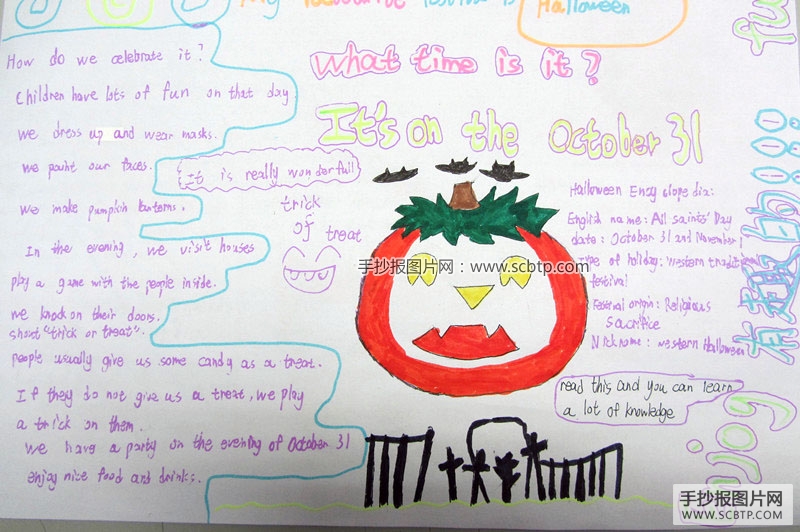 My favourite festival is Halloween
How do we celebrate it?
Children have lots of fun on that day
we dress up and wear masks.
we paint our faces.
we make pumpkin lanterns.
In the evening, we visit houses
play a game with the people inside.
we knock on their doors.
shout "trick or treat".
people usually give us some candy as a treat.
If they do not give us a treat, we play
a trick on them.
we have a party on the evening of October 31
enjoy nice food and drinks.
What time is it?
It's on the October 31
It is really wonderfull
trick
of
treat
手抄报图片网：www.scbtp.com
Halloween Ency clope dia:
English name: All saints' Day
date: October 31 and November 1
Type of holiday: western traditional
festival
Festival origin: Religious
sacrifice
Nickname: western Halloween
read this and you can learn
a lot of knowledge
fu
有趣的!!!
enjoy
手抄报图片网
SCBTP.COM